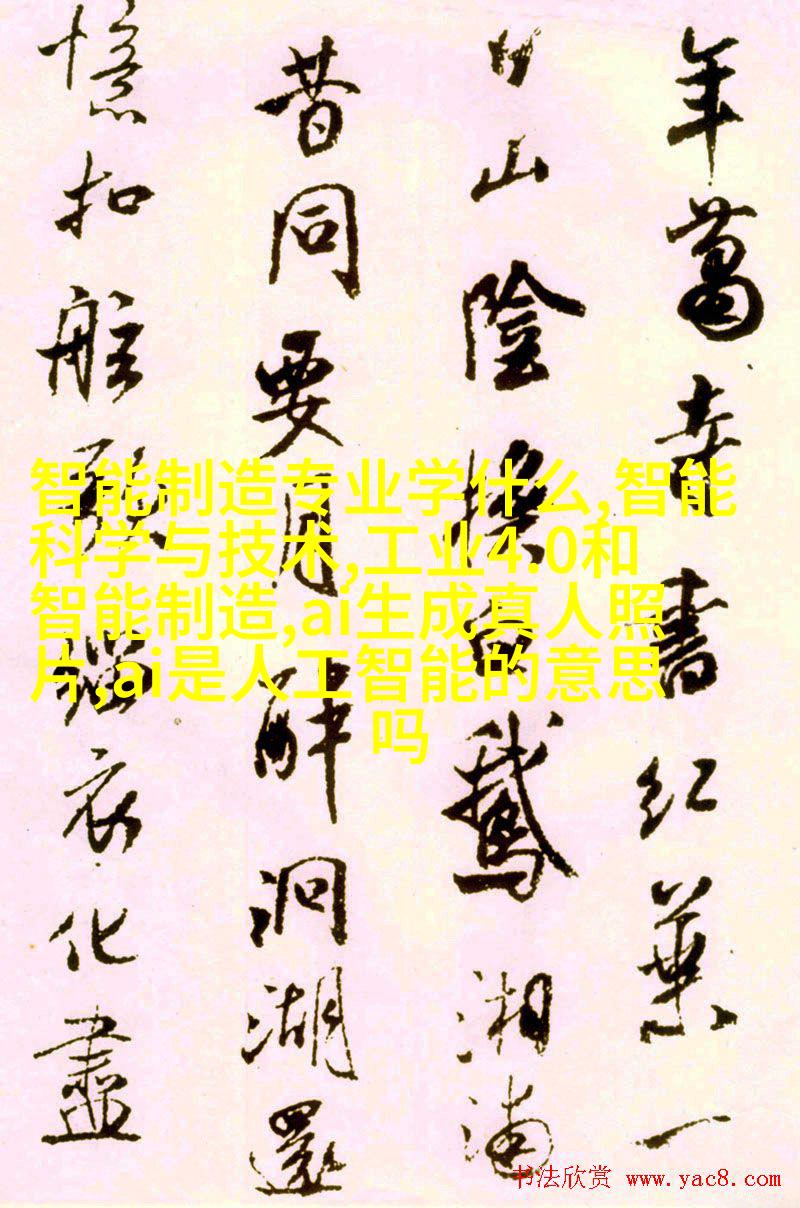 年蕭寺書紅葉一
日山陰換白鵝湘浦
昔同要月醉洞湖還
憶扣舷歌緇衣化盡
智能制造专业学什么,智能
科学与技术,工业4.0和
智能制造,ai生成真人照
片,ai是人工智能的意思
吗
书法欣赏 www.yac8.com